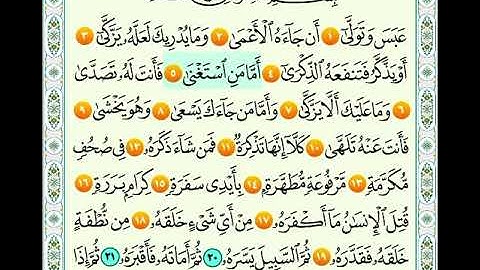 عَبَسَ وَتَوَلَّىٰٓ ١ أَن جَآءَهُ ٱلْأَعْمَىٰ ٢ وَمَا يُدْرِيكَ لَعَلَّهُۥ يَزَّكَّىٰٓ ٣
أَوْ يَذَّكَّرُ فَتَنفَعَهُ ٱلذِّكْرَىٰٓ ٤ أَمَّا مَنِ ٱسْتَغْنَىٰ ٥ فَأَنتَ لَهُۥ تَصَدَّىٰ
٦ وَمَا عَلَيْكَ أَلَّا يَزَّكَّىٰ ٧ وَأَمَّا مَن جَآءَكَ يَسْعَىٰ ٨ وَهُوَ يَخْشَىٰ ٩
فَأَنتَ عَنْهُ تَلَهَّىٰ ١٠ كَلَّآ إِنَّهَا تَذْكِرَةٌ ١١ فَمَن شَآءَ ذَكَرَهُۥ ١٢ فِى صُحُفٍ
مُّكَرَّمَةٍ ١٣ مَّرْفُوعَةٍ مُّطَهَّرَةٍۭ ١٤ بِأَيْدِى سَفَرَةٍ ١٥ كِرَامٍۭ بَرَرَةٍ ١٦
قُتِلَ ٱلْإِنسَٰنُ مَآ أَكْفَرَهُۥ ١٧ مِنْ أَىِّ شَىْءٍ خَلَقَهُۥ ١٨ مِن نُّطْفَةٍ
خَلَقَهُۥ فَقَدَّرَهُۥ ١٩ ثُمَّ ٱلسَّبِيلَ يَسَّرَهُۥ ٢٠ ثُمَّ أَمَاتَهُۥ فَأَقْبَرَهُۥ ٢١ ثُمَّ إِذَا